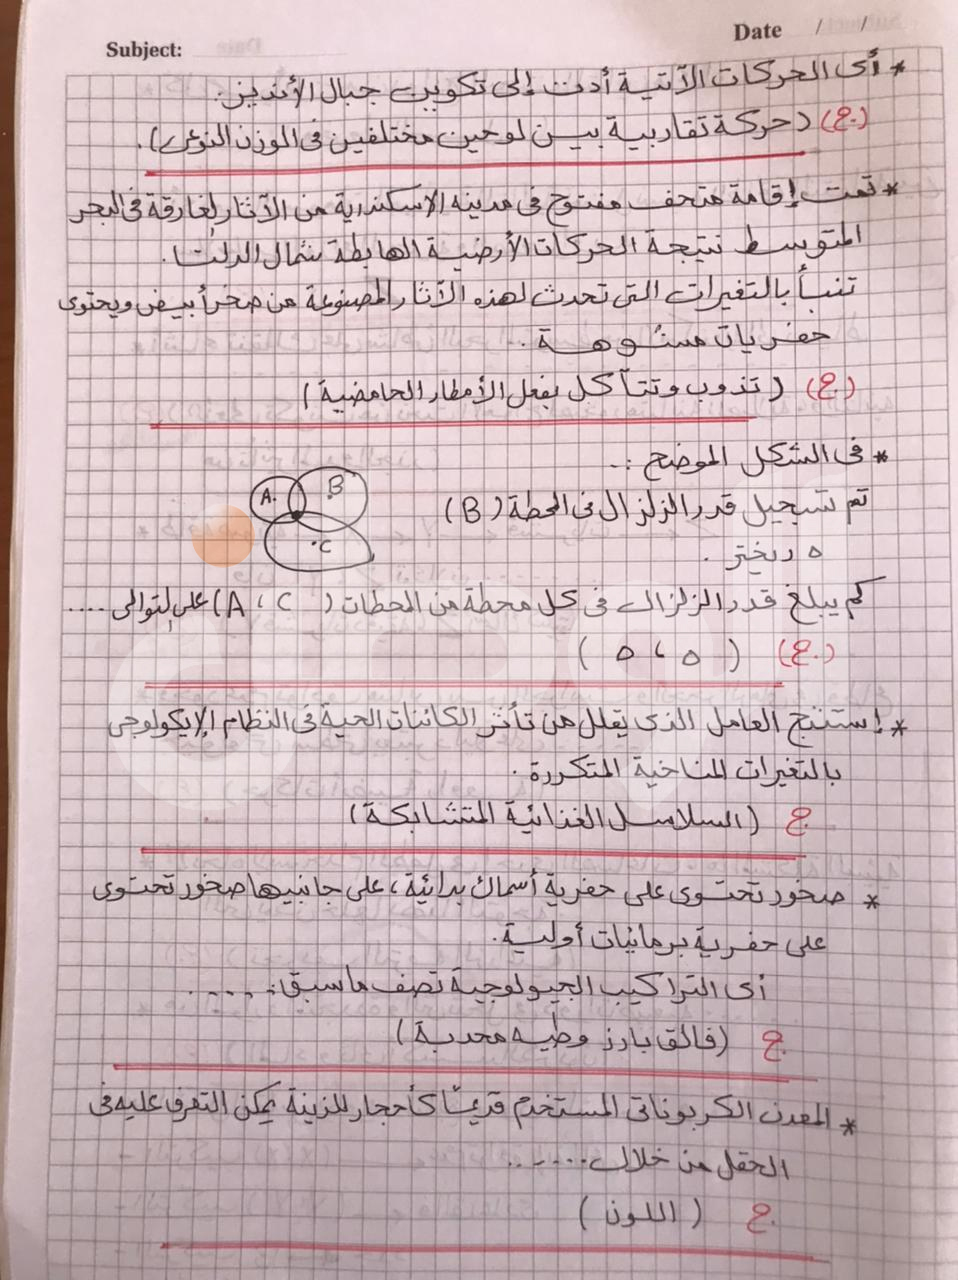 Date / /
Subject:
* أى الحركات الآتية أدت إلى تكوين جبال الأنديز.
(ج) (حركة تقاربية بين لوحين مختلفين فى الوزن النوعى).
* تمت إقامة متحف مفتوح فى مدينه الاسكندرية من الآثار الغارقة فى البحر
المتوسط نتيجة الحركات الأرضية الهابطة شمال الدلتا.
تنبأ بالتغيرات التى تحدث لهذه الآثار المصنوعة من صخر أبيض ويحتوى
حفريات مشوهة.
(ج) (تذوب وتتآكل بفعل الأمطار الحامضية)
* فى الشكل الموضح :-
A. B .C
تم تسجيل قدر الزلزال فى المحطة (B)
٥ ريختر.
كم يبلغ قدر الزلزال فى كل محطة من المحطات (A ، C) على التوالى ....
(ج) (٥ ، ٥)
* إستنتج العامل الذى يقلل من تأثر الكائنات الحية فى النظام الإيكولوجى
بالتغيرات المناخية المتكررة.
ج (السلاسل الغذائية المتشابكة)
* صخور تحتوى على حفرية أسماك بدائية، على جانبيها صخور تحتوى
على حفرية برمائيات أولية.
أى التراكيب الجيولوجية تصف ماسبق. ....
ج (فالق بارز وطيه محدبة)
* المعدن الكربوناتى المستخدم قديمًا كأحجار للزينة يمكن التعرف عليه فى
الحقل من خلال......
ج (اللون)